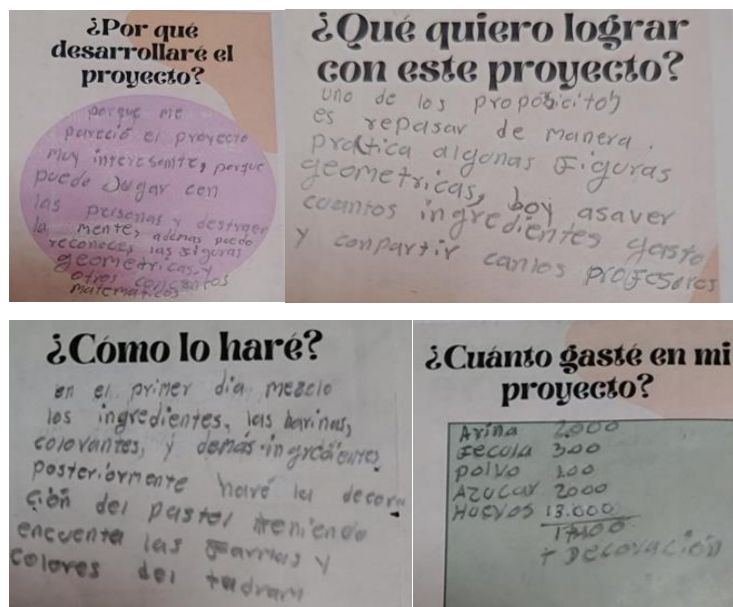 ¿Por qué
desarrollaré el
proyecto?
porque me
pareció el proyecto
muy interesante, porque
puedo Jugar con
las personas y destraer
la mente, ademas puedo
reconocer las figuras
geometricas, y
otros conceptos
matematicos
¿Qué quiero lograr
con este proyecto?
uno de los propósicitos
es repasar de manera
practica algunas Figuras
geometricas, boy asaver
cuantos ingredientes gasto
y conpartir con los profesores
¿Cómo lo haré?
en el primer dia mezclo
los ingredientes, las harinas,
colorantes, y demas ingredientes
posteriormente haré la decora
ción del pastel teniendo
encuenta las Formas y
colores del
¿Cuánto gasté en mi
proyecto?
Arina 2.000
Fecula 300
polvo 100
Azucar 2000
Huevos 13.000
+ Decoración